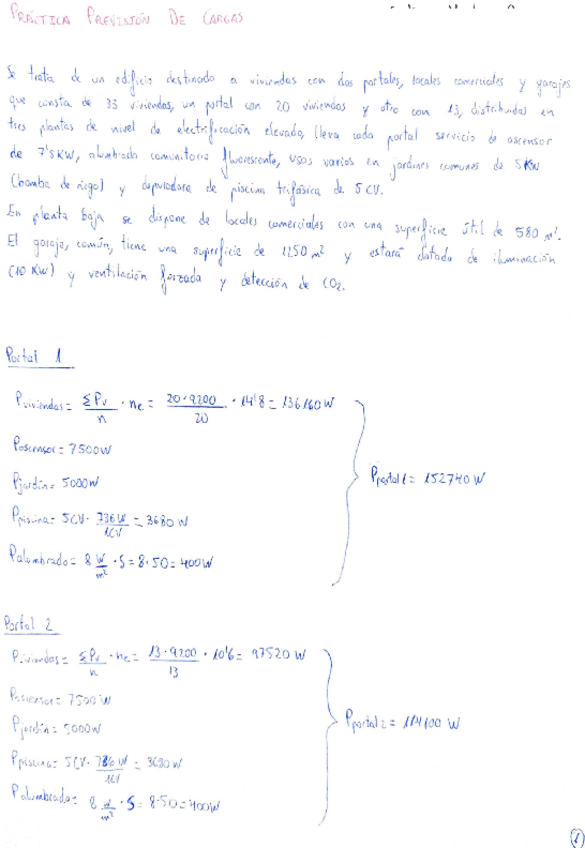 PRÁCTICA PREVISIÓN DE CARGAS
Se trata de un edificio destinado a viviendas con dos portales, locales comerciales y garajes
que consta de 33 viviendas, un portal con 20 viviendas y otro con 13, distribuidas en
tres plantas de nivel de electrificación elevado, lleva cada portal servicio de ascensor
de 7'5KW, alumbrado comunitario fluorescente, usos varios en jardines comunes de 5KW
(bomba de riego) y depuradora de piscina trifásica de 5CV.
En planta baja se dispone de locales comerciales con una superficie útil de 580 m².
El garaje, común, tiene una superficie de 1250 m² y estará dotado de iluminación
(10 KW) y ventilación forzada y detección de CO₂.
Portal 1
Pviviendas = ΣPv/n · nc = 20·9200/20 · 14'8 = 136160W
Pascensor = 7500W
Pjardín = 5000W
Ppiscina = 5CV · 736W/1CV = 3680 W
Palumbrado = 8 W/m² · S = 8·50 = 400W
Pportal1 = 152740 W
Portal 2
Pviviendas = ΣPv/n · nc = 13·9200/13 · 10'6 = 97520 W
Pascensor = 7500 W
Pjardín = 5000W
Ppiscina = 5CV · 736 W/1CV = 3680 W
Palumbrado = 8 W/m² · S = 8·50 = 400W
Pportal2 = 114100 W